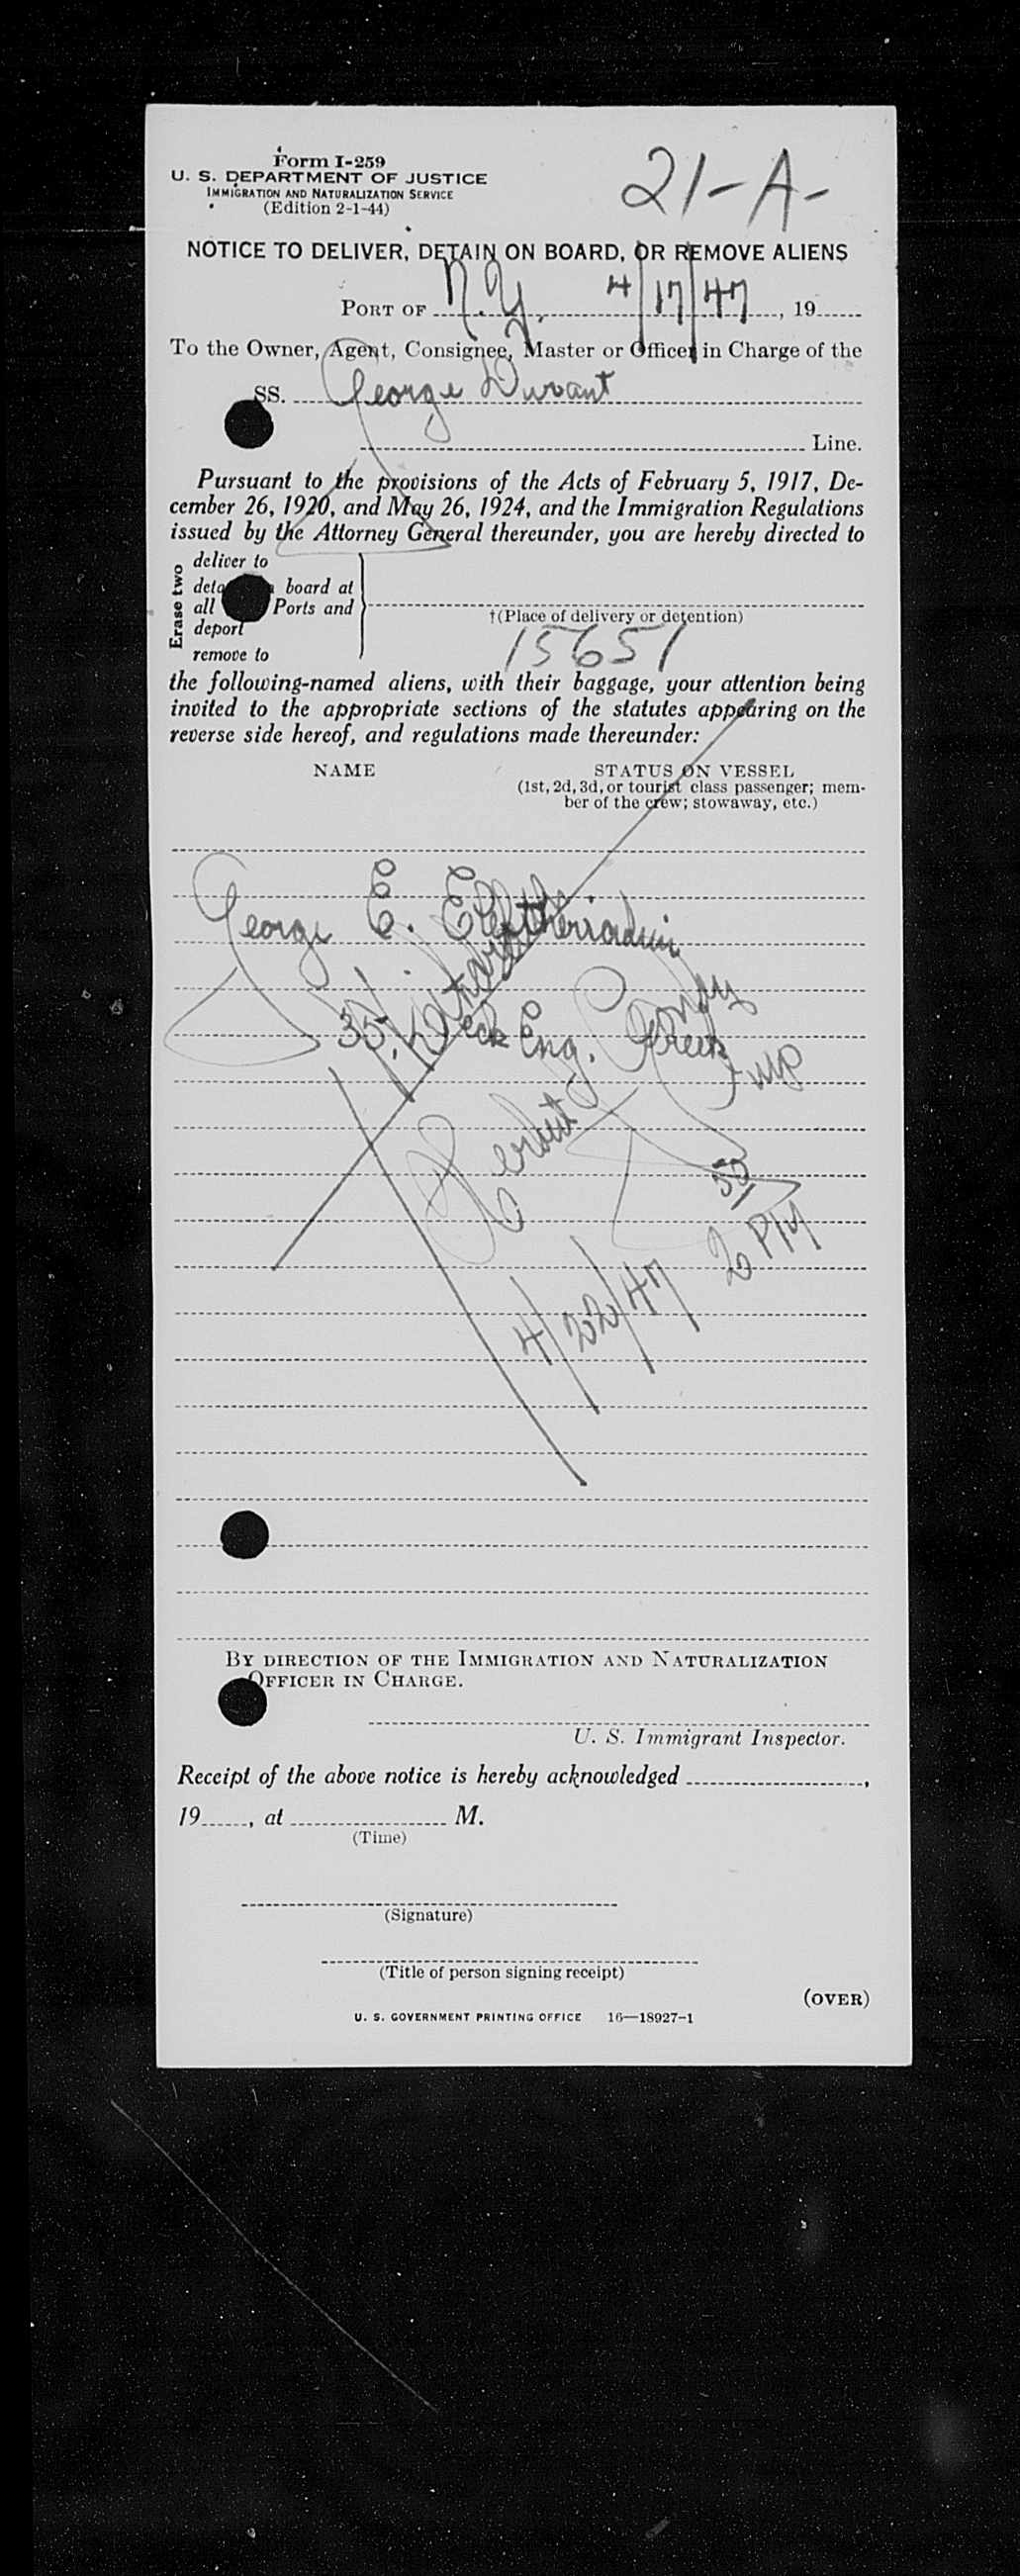 Form I-259
U. S. DEPARTMENT OF JUSTICE
IMMIGRATION AND NATURALIZATION SERVICE
(Edition 2-1-44)
21-A-
NOTICE TO DELIVER, DETAIN ON BOARD, OR REMOVE ALIENS
PORT OF N.Y. 4/17/47, 19
To the Owner, Agent, Consignee, Master or Officer in Charge of the
SS. George Durant
Line.
Pursuant to the provisions of the Acts of February 5, 1917, De-
cember 26, 1920, and May 26, 1924, and the Immigration Regulations
issued by the Attorney General thereunder, you are hereby directed to
Erase two
deliver to
board at
all Ports and
deport
remove to
†(Place of delivery or detention)
15651
the following-named aliens, with their baggage, your attention being
invited to the appropriate sections of the statutes appearing on the
reverse side hereof, and regulations made thereunder:
NAME STATUS ON VESSEL
(1st, 2d, 3d, or tourist class passenger; mem-
ber of the crew; stowaway, etc.)
George E.
35 Eng. Greek
Herbert J.
4/22/47 2 55 PM
BY DIRECTION OF THE IMMIGRATION AND NATURALIZATION
OFFICER IN CHARGE.
U. S. Immigrant Inspector.
Receipt of the above notice is hereby acknowledged ,
19 , at M.
(Time)
(Signature)
(Title of person signing receipt)
(OVER)
U. S. GOVERNMENT PRINTING OFFICE 16—18927-1